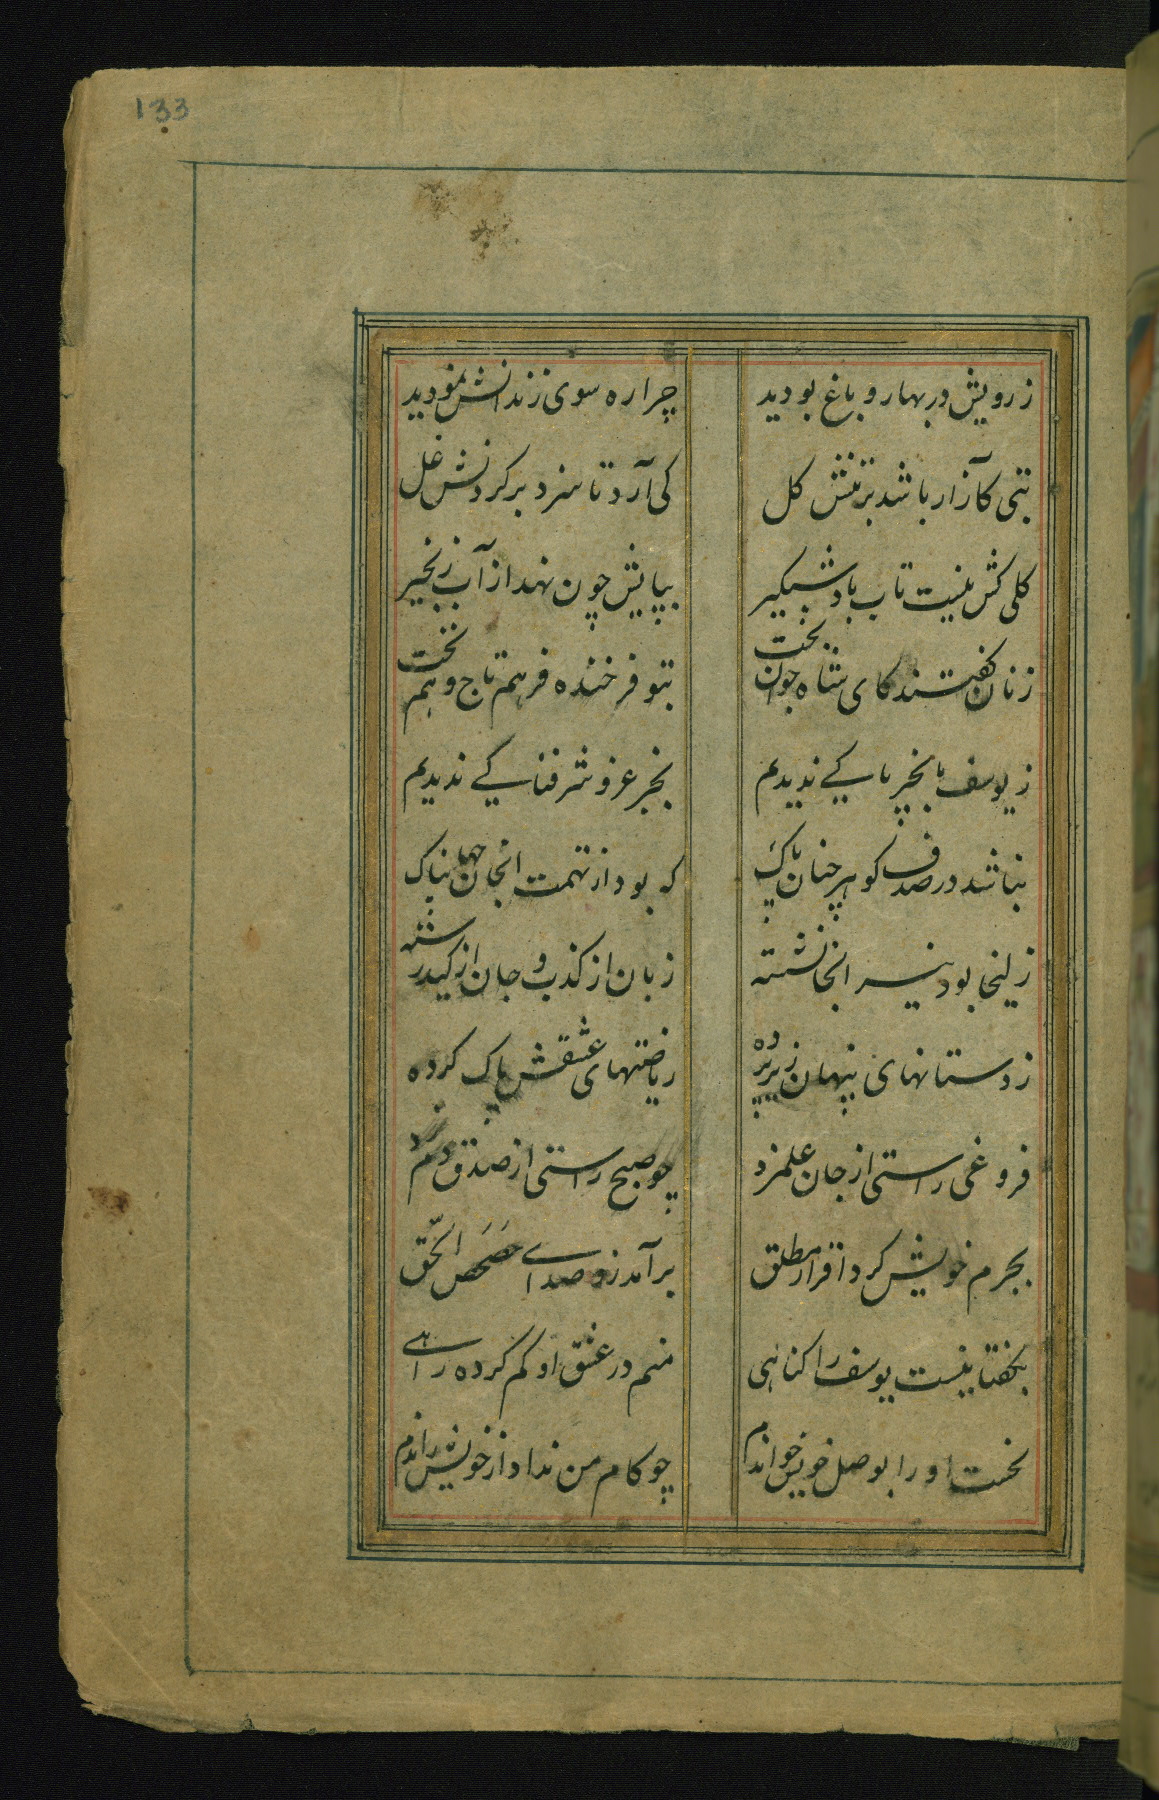 133
ز رویش در بهار و باغ بودید
چرا ره سوی زندانش نمودید
بتی کازار باشد بر تنش کل
کی آرد تا سزد بر کردنش غل
کلی کش نیست تاب باد شبکیر
بپایش چون نهد از آب زنجیر
زنان کفتند کای شاه جوان بخت
بتو فرخنده فر هم تاج و هم تخت
ز یوسف ما بجز پاکی ندیدیم
بجز عز و شرفناکی ندیدیم
نباشد در صدف کوهر چنان پاک
که بود از تهمت آنجان جهان پاک
زلیخا بود نیز آنجا نشسته
زبان از کذب و جان از کید رسته
ز دستانهای پنهان زیر پرده
ریاضتهای عشقش پاک کرده
فروغی راستی از جان علم زد
چو صبح راستی از صدق دم زد
بجرم خویش کرد اقرار مطلق
برآمد زو صدای حصحص الحق
بکفتا نیست یوسف را کناهی
منم در عشق او کم کرده راهی
نخست او را بوصل خویش خواندم
چو کام من نداد از خویش راندم